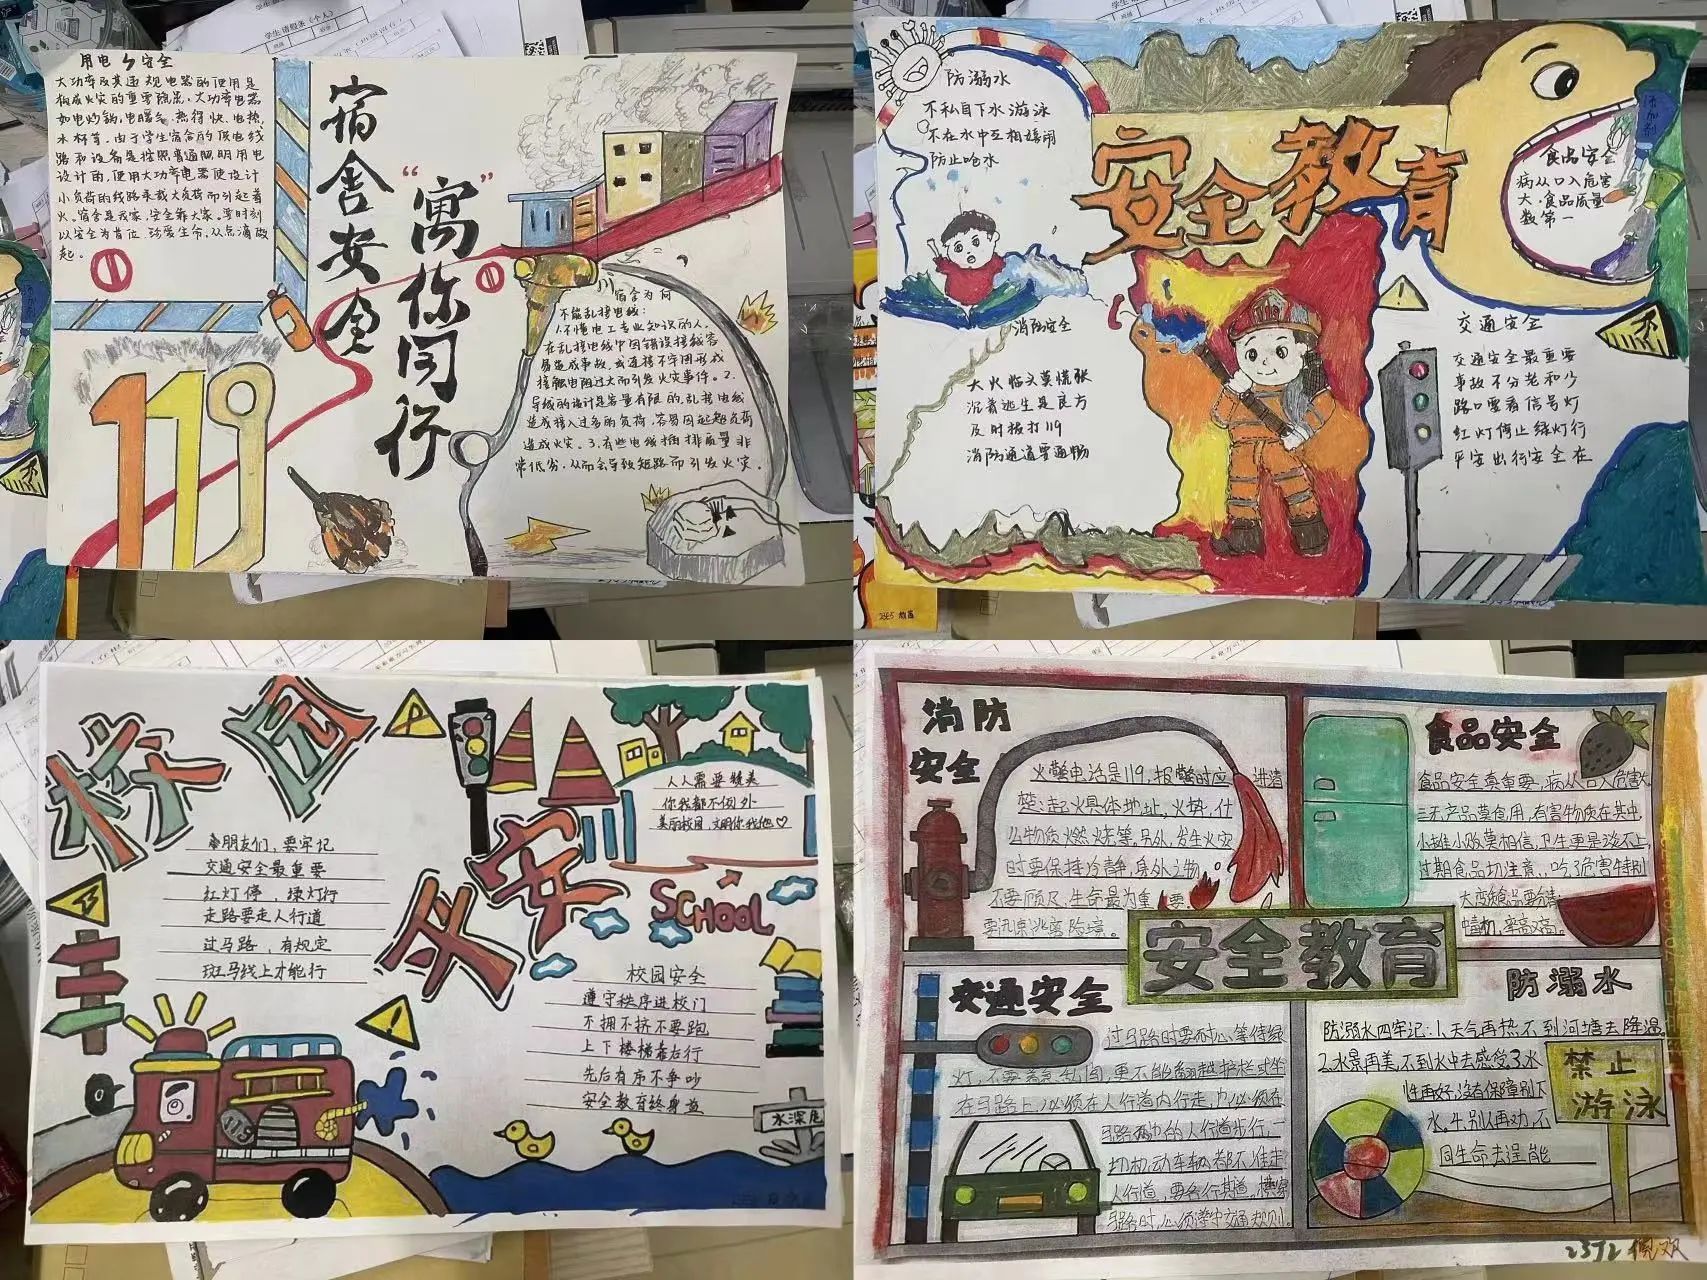 用电安全
大功率及其违规电器的使用是
构成火灾的重要隐患,大功率电器
如电炒锅,电暖气、热得快、电热
水杯等。由于学生宿舍的供电线
路和设备是按照普通照明用电
设计的,使用大功率电器使设计
小负荷的线路乘载大负荷而引起着
火。宿舍是我家,安全靠大家。要时刻
以安全为首位,珍爱生命,从点滴做
起。
宿舍安全
“寓”你同行
119
宿舍为何
不能乱接电线:
1.不懂电工专业知识的人,
在乱接电线中因错误接线容
易造成事故,或连接不牢固形成
接触电阻过大而引发火灾事件。2.
导线的设计是容量有限的,乱接电线
造成接入过多的负荷,容易因起超负荷
造成火灾。3.有些电线插排质量非
常低劣,从而会导致短路而引发火灾。
防溺水
不私自下水游泳
不在水中互相嬉闹
防止呛水
安全教育
添加剂
食品安全
病从口入危害
大,食品质量
数第一
消防安全
大火临头莫慌张
沉着逃生是良方
及时拨打119
消防通道要通畅
交通安全
交通安全最重要
事故不分老和少
路口要看信号灯
红灯停止绿灯行
平安出行安全在
校园安全
朋友们,要牢记
交通安全最重要
红灯停,绿灯行
走路要走人行道
过马路,有规定
斑马线上才能行
人人需要赞美
你我都不例外
美丽校园,文明你我他♡
SCHOOL
校园安全
遵守秩序进校门
不拥不挤不要跑
上下楼梯靠右行
先后有序不争吵
安全教育终身益
119
水深危
消防
安全
火警电话是119,报警时应讲清
楚:起火具体地址,火势,什
么物质燃烧等,另外,发生火灾
时要保持冷静,身外之物
不要顾及,生命最为重要
要迅速逃离险境。
食品安全
食品安全真重要,病从口入危害大
三无产品莫食用,有害物质在其中,
小摊小贩莫相信,卫生更是谈不上,
过期食品切注意,吃了危害特别
大
安全教育
交通安全
过马路时要耐心等待绿
灯,不要着急乱闯,更不能翻越护栏或坐
在马路上,必须在人行道内行走,也必须在
马路两边的人行道步行,一
切机动车辆都不准走
人行道,要各行其道,横穿
马路时,必须遵守交通规则。
防溺水
防溺水四牢记:1.天气再热,不到河塘去降温
2.水景再美,不到水中去感受,3.水
性再好,没有保障别下
水,4.别人再劝,不
同生命去逞能
禁止
游泳